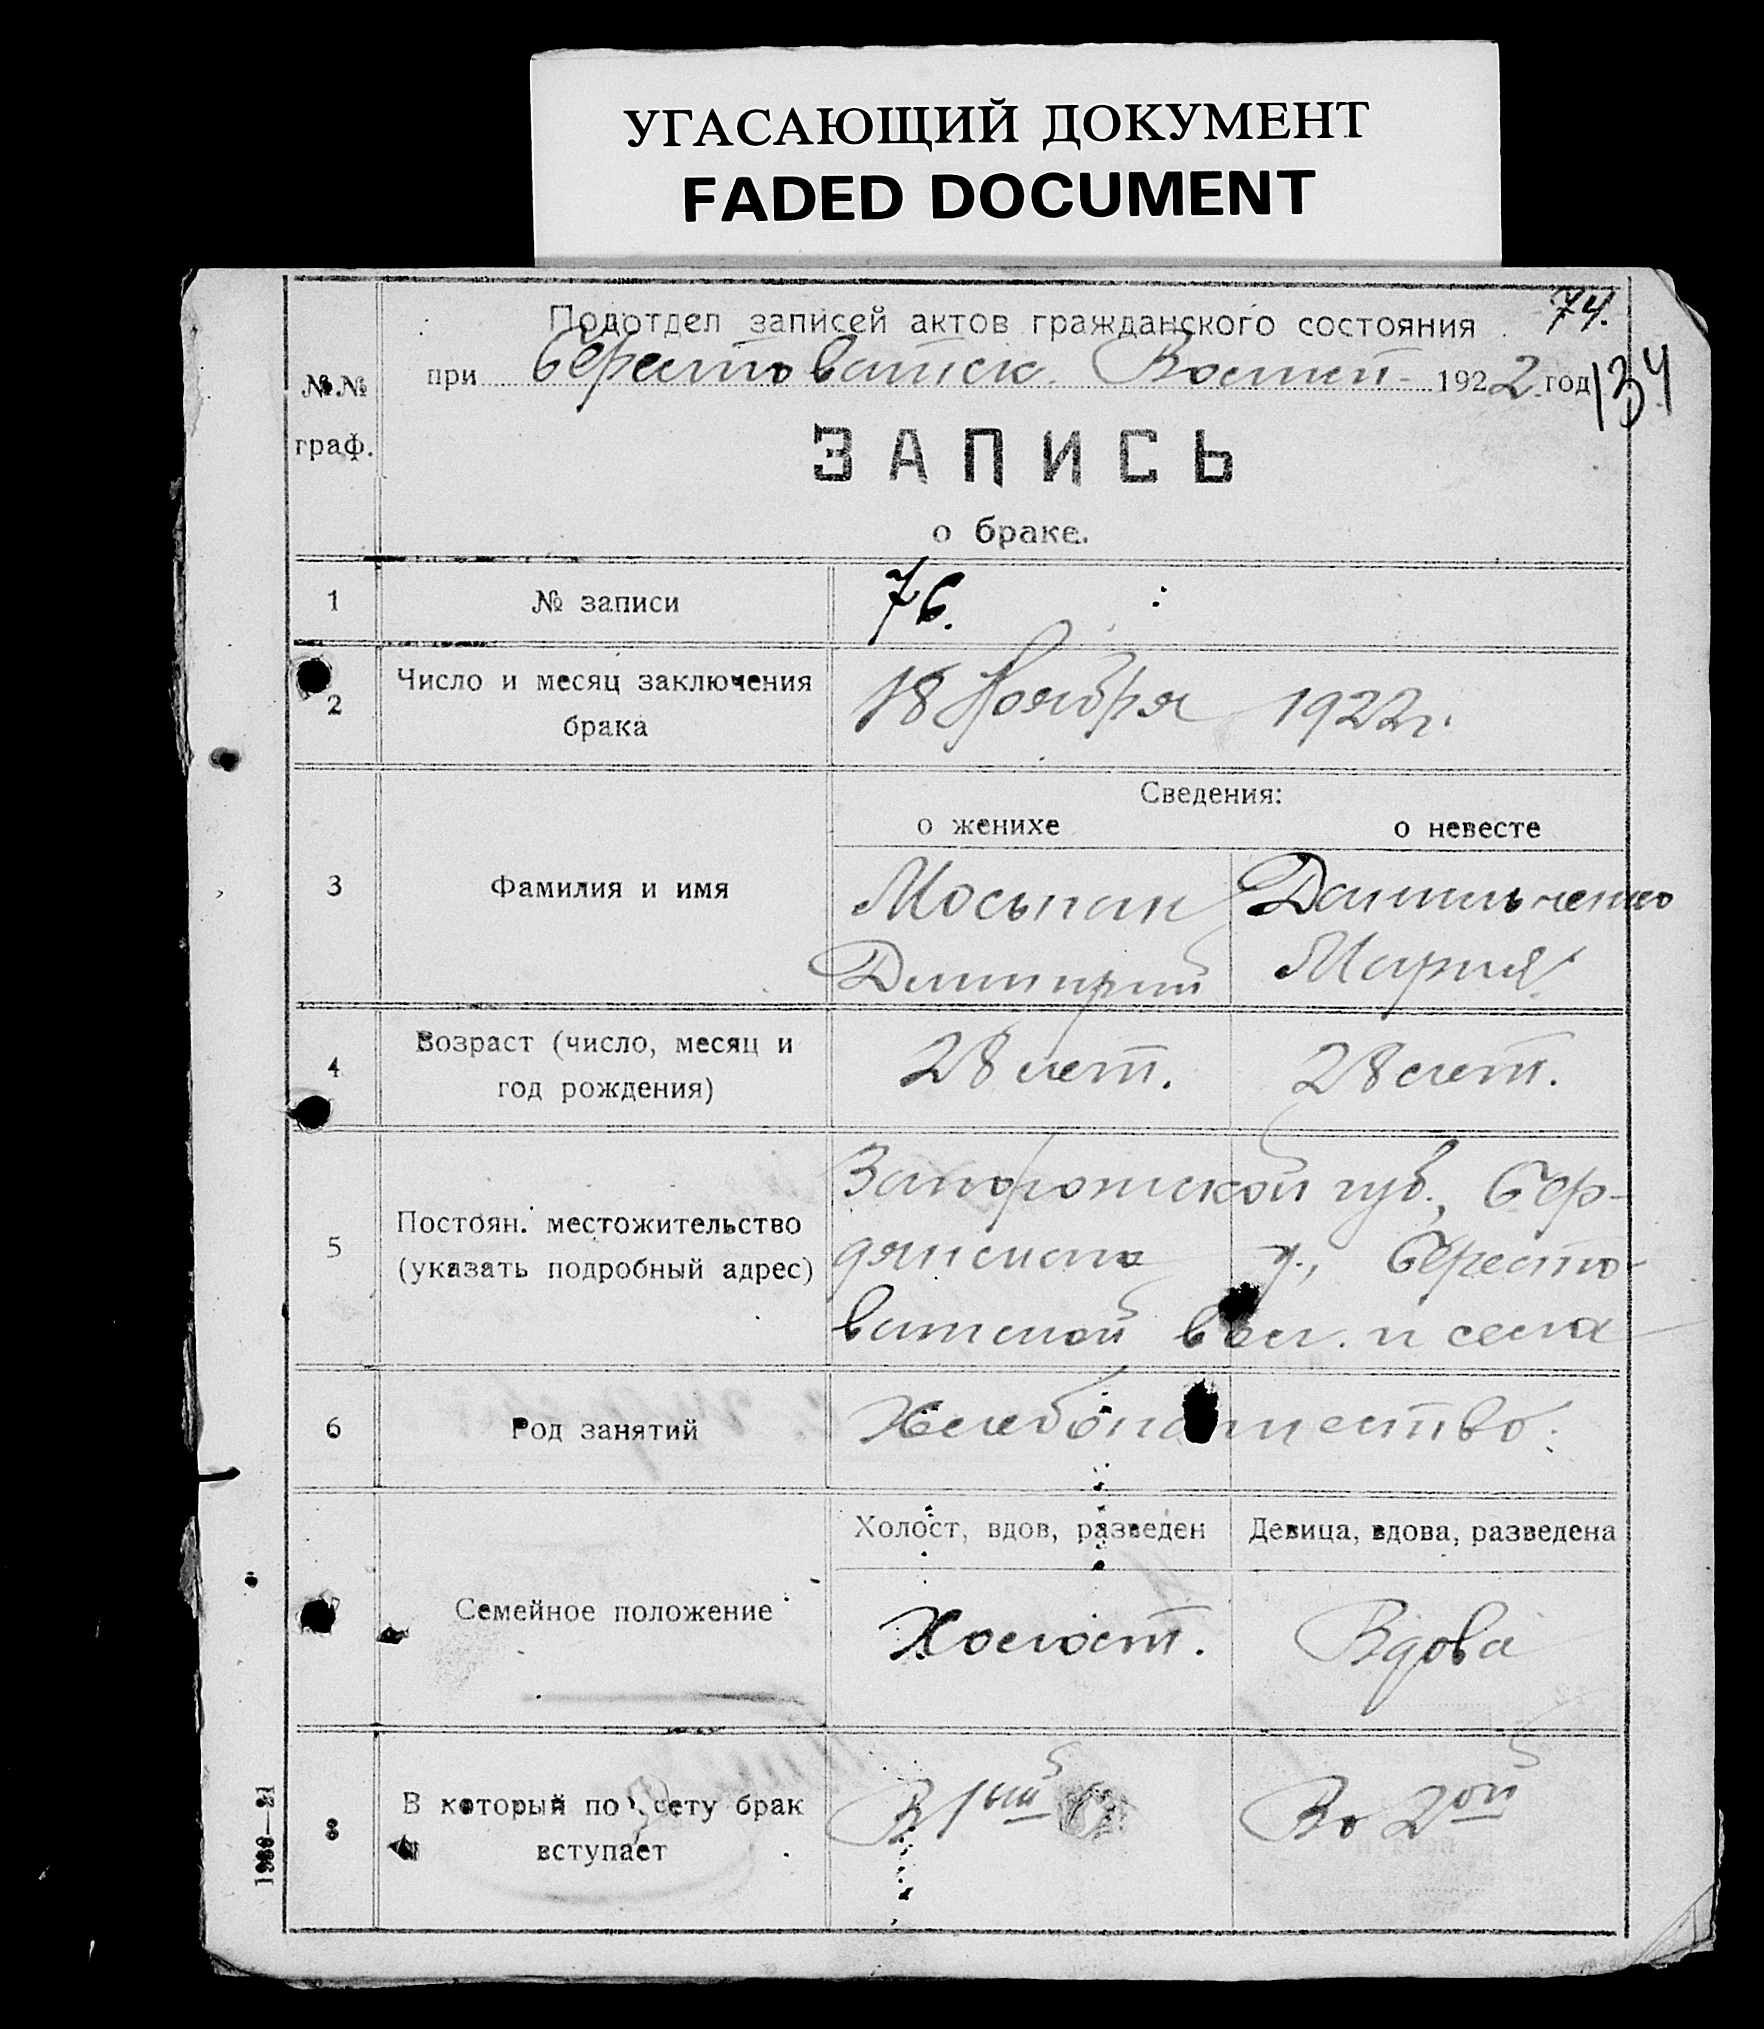 УГАСАЮЩИЙ ДОКУМЕНТ
FADED DOCUMENT
74.
134
Подотдел записей актов гражданского состояния
при Берестоватск. 1922 год
№№ граф.
ЗАПИСЬ
о браке.
1 № записи 76.
2 Число и месяц заключения брака 18 Ноября 1922 г.
Сведения:
о женихе о невесте
3 Фамилия и имя
Моспан Данильченко
Димитрий Мария
4 Возраст (число, месяц и год рождения) 28 лет. 28 лет.
5 Постоян. местожительство (указать подробный адрес)
Запорожской губ., Бер-
дянского у., Бересто-
ватской вол. и села
6 Род занятий Хлебопашество.
Холост, вдов, разведен Девица, вдова, разведена
7 Семейное положение Холост. Вдова
8 В который по счету брак вступает В 1ый Во 2ой